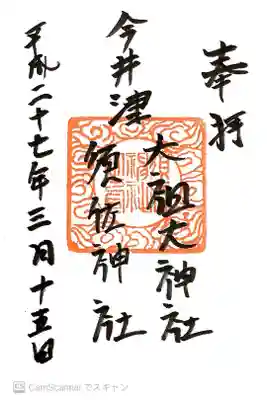 奉拝
大祖大神社
今井津須佐神社
平成二十七年三月十五日
CamScanner でスキャン